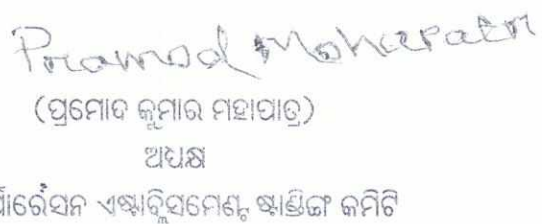 Pramod Mohapatra
(ପ୍ରମୋଦ କୁମାର ମହାପାତ୍ର)
ଅଧ୍ୟକ୍ଷ
ଏଷ୍ଟାବ୍ଲିସମେଣ୍ଟ ଷ୍ଟାଣ୍ଡିଙ୍ଗ କମିଟି